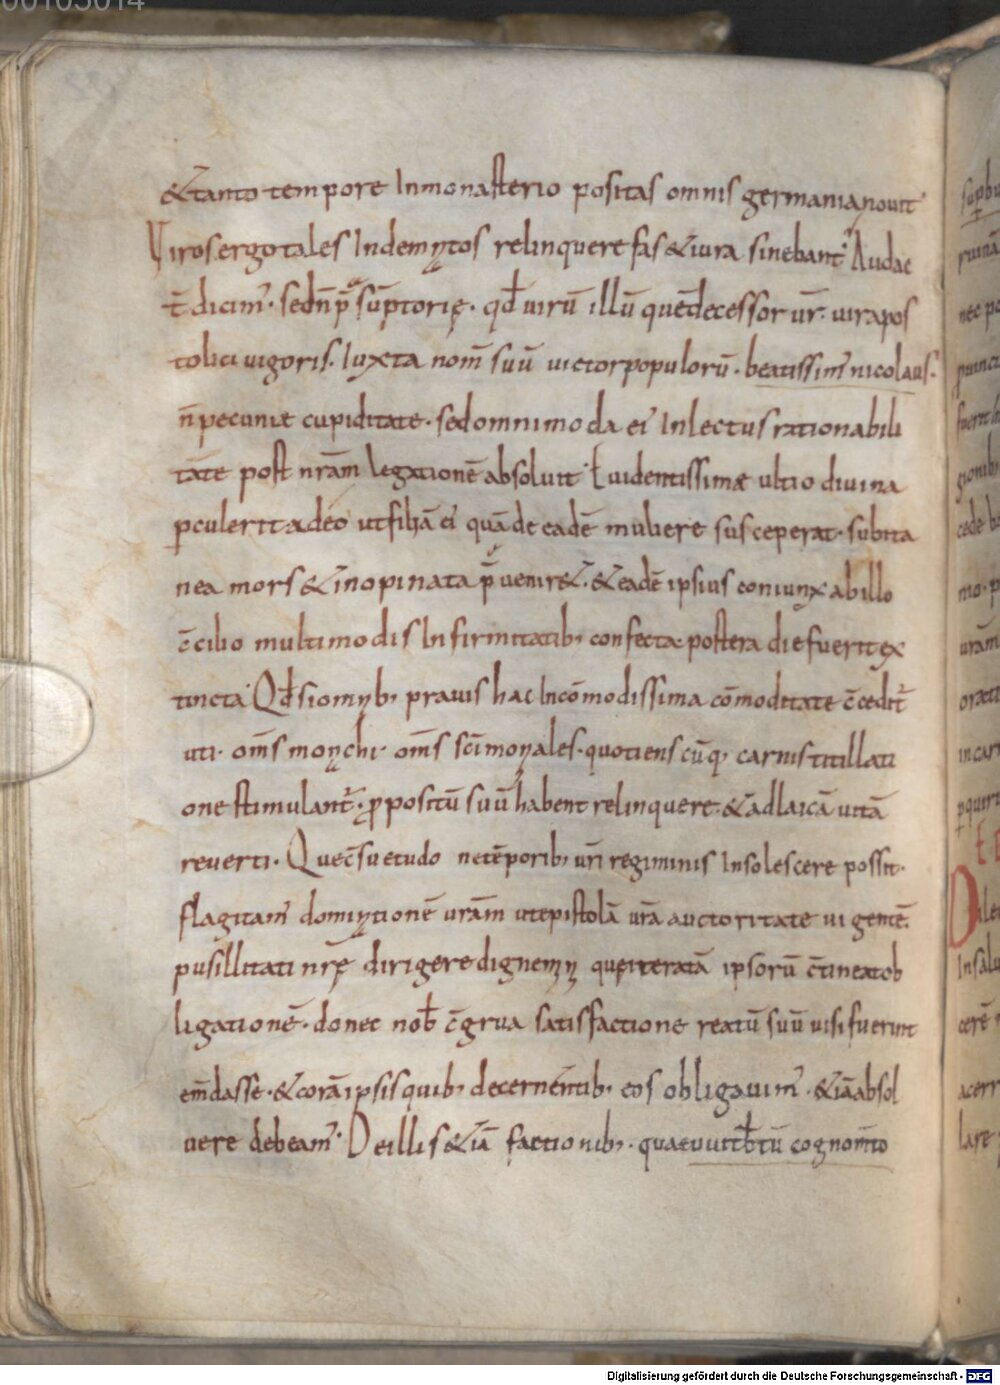 &tanto tempore Inmonasterio positas omnis germania nouit
Viros ergo tales Indemptos relinquere fas & iura sinebant. Audac
t̄ dicim̄. sed n̄ p̄ sūptorię. qđ uirū illū quē decessor ur̄. uir apos
tolici uigoris. Iuxta nom̄ suū uictor populorū. beatissim̄ nicolaus.
n̄ pecuniæ cupiditate. sed omnimoda ei Inlectus rationabili
tate post nr̄am legationē absoluit. Euidentissimæ ultio diuina
pculerit adeo ut filiā ei quā de eadē muliere susceperat. subita
nea mors & inopinata p̄uenir&. & eadē ipsius coniunx ab illo
c̄cibo multimodis Infirmitatib; confecta postera die fuerit ex
tincta. Qđ si omnib; prauis hac Incōmodissima cōmoditate c̄cedit̄
uti. om̄s monchi. om̄s sc̄imonales. quotiens cūq; carnis titillati
one stimulant̄. ppositū suū habent relinquere. & ad laicā uitā
reuerti. Quec̄suetudo ne tēporib; ur̄i regiminis Insolescere possit.
flagitam̄ domnationē ur̄am ut epistolā ur̄a auctoritate uigentē.
pusillitati nr̄ę dirigere dignemn̄ que iteratā ipsorū c̄tineat ob
ligationē. donec nob̄ c̄grua satisfactione reatū suū uisi fuerint
em̄dasse. & corā ipsis quib; decernentib; eos obligauim̄. & iā absol
uere debeam̄. De illis & iā factionib;. quae uuitb̄tū cognom̄to